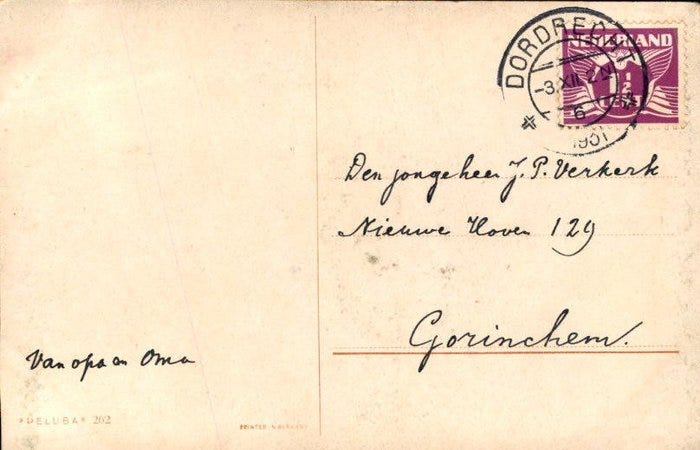 DORDRECHT
-3.XII. 2 N
6
1931
NEDERLAND
1 1/2
CENT
Den jongeheer J. P. Verkerk
Nieuwe Hoven 129
Gorinchem.
Van opa en Oma
*DELUBA* 262
PRINTED IN GERMANY